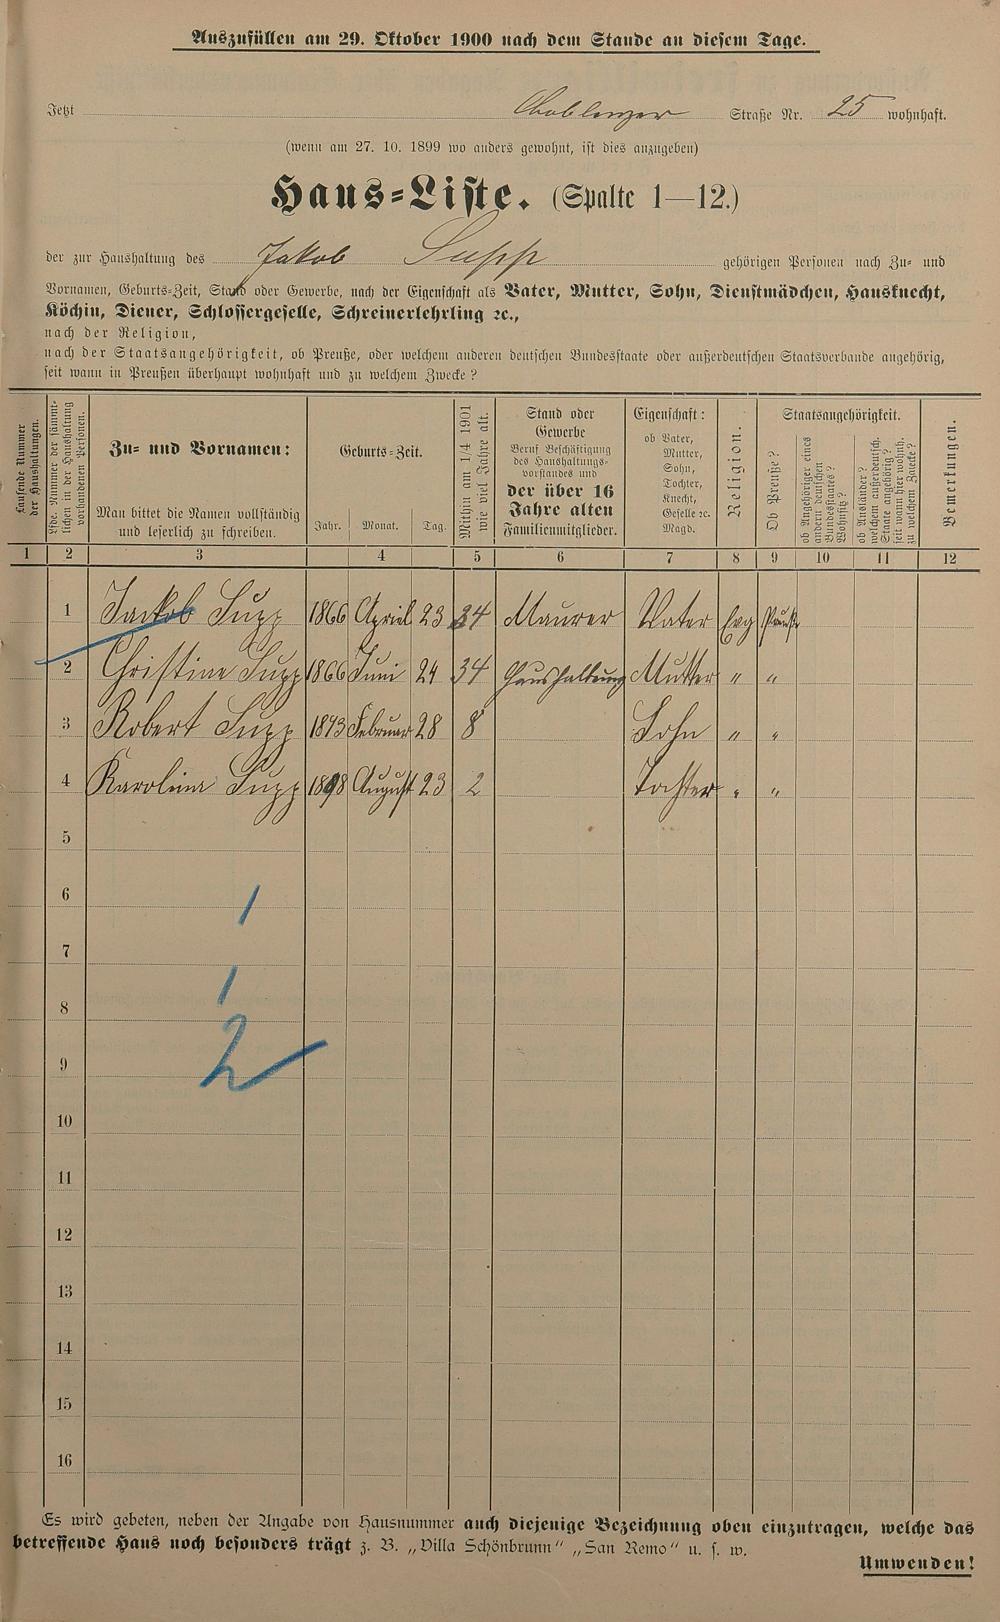 Auszufüllen am 29. Oktober 1900 nach dem Stande an diesem Tage.
Jetzt Coblenzer Straße Nr. 25 wohnhaft.
(wenn am 27. 10. 1899 wo anders gewohnt, ist dies anzugeben)
Haus-Liste. (Spalte 1—12.)
der zur Haushaltung des Jakob Supp gehörigen Personen nach Zu- und
Vornamen, Geburts-Zeit, Stand oder Gewerbe, nach der Eigenschaft als Vater, Mutter, Sohn, Dienstmädchen, Hausknecht,
Köchin, Diener, Schlossergeselle, Schreinerlehrling ꝛc.,
nach der Religion,
nach der Staatsangehörigkeit, ob Preuße, oder welchem anderen deutschen Bundesstaate oder außerdeutschen Staatsverbande angehörig,
seit wann in Preußen überhaupt wohnhaft und zu welchem Zwecke?
Laufende Nummer
der Haushaltungen.
Lfde. Nummer der sämmt-
lichen in der Haushaltung
vorhandenen Personen.
Zu- und Vornamen:
Man bittet die Namen vollständig
und leserlich zu schreiben.
Geburts-Zeit.
Jahr. Monat. Tag.
Mithin am 1/4 1901
wie viel Jahre alt.
Stand oder
Gewerbe
Beruf Beschäftigung
des Haushaltungs-
vorstandes und
der über 16
Jahre alten
Familienmitglieder.
Eigenschaft:
ob Vater,
Mutter,
Sohn,
Tochter,
Knecht,
Geselle ꝛc.
Magd.
Religion.
Staatsangehörigkeit.
Ob Preuße?
ob Angehöriger eines
andern deutschen
Bundesstaates?
Wohnsitz?
ob Ausländer?
welchem außerdeutsch.
Staate angehörig?
seit wann hier wohnh.
zu welchem Zwecke?
Bemerkungen.
1 2 3 4 5 6 7 8 9 10 11 12
1 Jackob Supp 1866 April 23 34 Maurer Vater Evg Preuße
2 Christine Supp 1866 Juni 24 34 Haushaltung Mutter " "
3 Robert Supp 1893 Februar 28 8 Sohn " "
4 Karolina Supp 1898 August 23 2 Tochter " "
5
6
1
7
1
8
2
9
10
11
12
13
14
15
16
Es wird gebeten, neben der Angabe von Hausnummer auch diejenige Bezeichnung oben einzutragen, welche das
betreffende Haus noch besonders trägt z. B. „Villa Schönbrunn" „San Remo" u. s. w.
Umwenden!